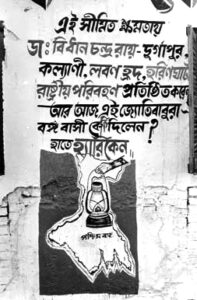 এই সীমিত ক্ষমতায়
ডাঃ বিধান চন্দ্র রায়-দুর্গাপুর,
কল্যাণী, লবণ হ্রদ, হরিণঘাটা
রাষ্ট্রীয় পরিবহণ প্রতিষ্ঠিত করেন
আর আজ এই জ্যোতিবাবুরা
বঙ্গ বাসী কী দিলেন?
হাতে হ্যারিকেন
পশ্চিম বঙ্গ